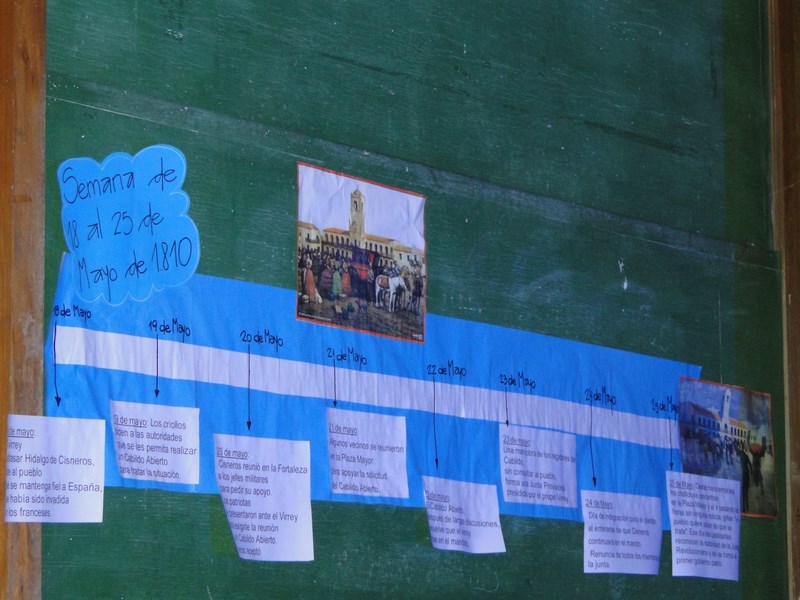 Semana de
18 al 25 de
Mayo de 1810
8 de Mayo
19 de Mayo
20 de Mayo
21 de Mayo
22 de Mayo
23 de Mayo
24 de Mayo
25 de Mayo
8 de mayo:
Virrey
tasar Hidalgo de Cisneros,
e al pueblo
se mantenga fiel a España,
e había sido invadida
los franceses.
19 de mayo: Los criollos
piden a las autoridades
que se les permita realizar
un Cabildo Abierto
para tratar la situación.
20 de mayo:
Cisneros reunió en la Fortaleza
a los jefes militares
para pedir su apoyo.
patriotas
presentaron ante el Virrey
la reunión
Cabildo Abierto.
aceptó
21 de mayo:
Algunos vecinos se reunieron
en la Plaza Mayor
para apoyar la solicitud
del Cabildo Abierto.
22 de mayo:
Cabildo Abierto,
después de largas discusiones,
que el virrey
en el mando.
23 de mayo:
Una maniobra de los regidores del
Cabildo,
sin consultar al pueblo,
forma una Junta Provisoria
presidida por el propio Virrey
24 de Mayo:
Día de indignación para el pueblo al
enterarse de que Cisneros
continuaría en el mando.
Renuncia de todos los miembros de
la junta.
25 de Mayo:
en la Plaza Mayor
"el
pueblo quiere saber de que se
trata".
primer gobierno patrio.